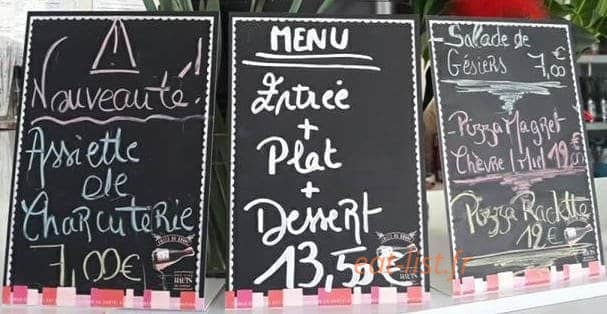 Nouveauté!
Assiette
de
Charcuterie
7,00€
MENU
Entrée
+
Plat
+
Dessert
13,50€
- Salade de
Gésiers 7,00
- Pizza Magret
Chèvre/Miel 12,00
Pizza Raclette
12€
eat-list.fr